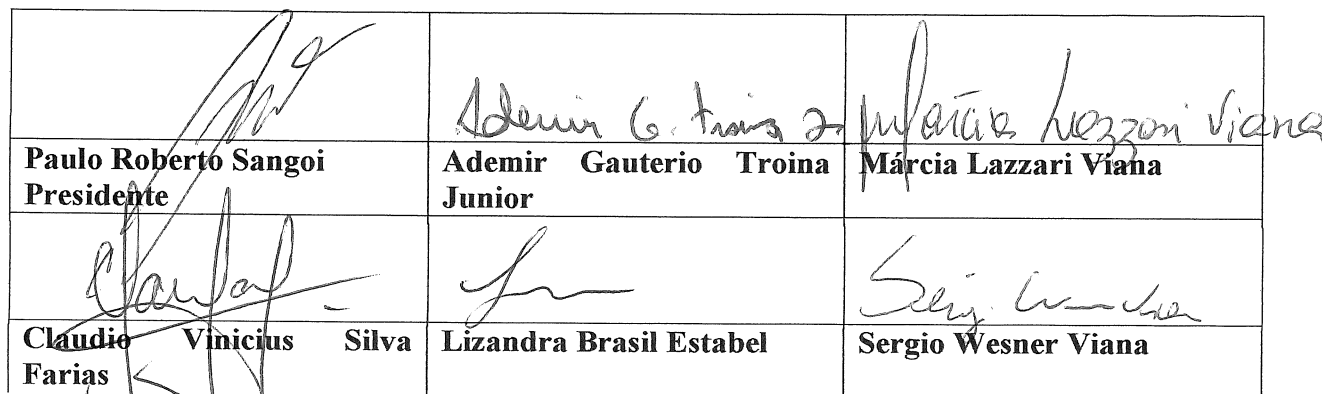 Ademir G. Troina Jr Márcia Lazzari Viana
Paulo Roberto Sangoi
Presidente
Ademir Gauterio Troina
Junior
Márcia Lazzari Viana
Claudio Vinicius Silva
Farias
Lizandra Brasil Estabel
Sergio Wesner Viana